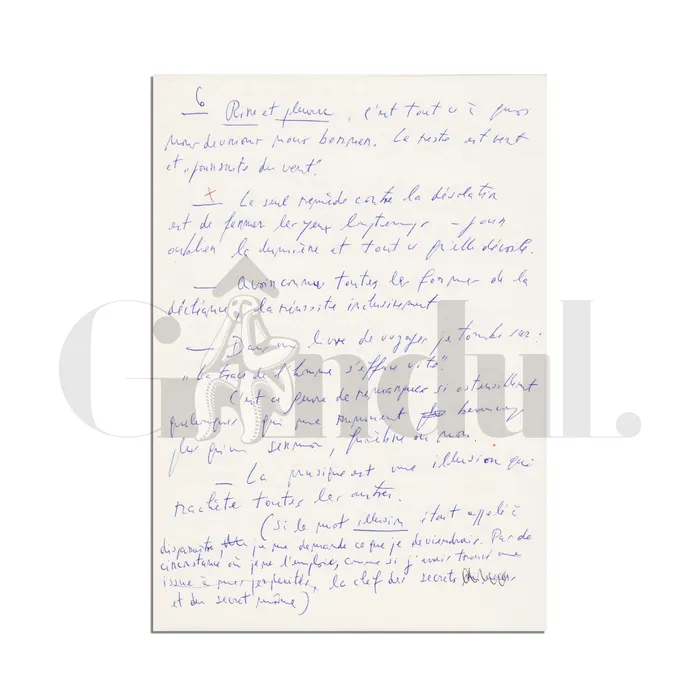 6
— Rire et pleurer, c'est tout ce à quoi
nous devrions nous borner. Le reste est vent
et „poursuite du vent".
x
— Le seul remède contre la désolation
est de fermer les yeux longtemps – pour
oublier la lumière et tout ce qu'elle dévoile.
— Avoir connu toutes les formes de la
déchéance, la réussite inclusivement
— Dans un livre de voyages je tombe sur:
„La trace de l'homme s'efface vite".
C'est ce genre de remarques si
quelconques qui me beaucoup
plus qu'un sermon, funèbre ou non.
— La musique est une illusion qui
rachète toutes les autres.
(Si le mot illusion était appelé à
disparaître, je me demande ce que je deviendrais. Pas de
circonstance où je ne l'emploie, comme si j'avais trouvé une
issue à mes perplexités, la clef des secrets
et du secret même)
Gândul.